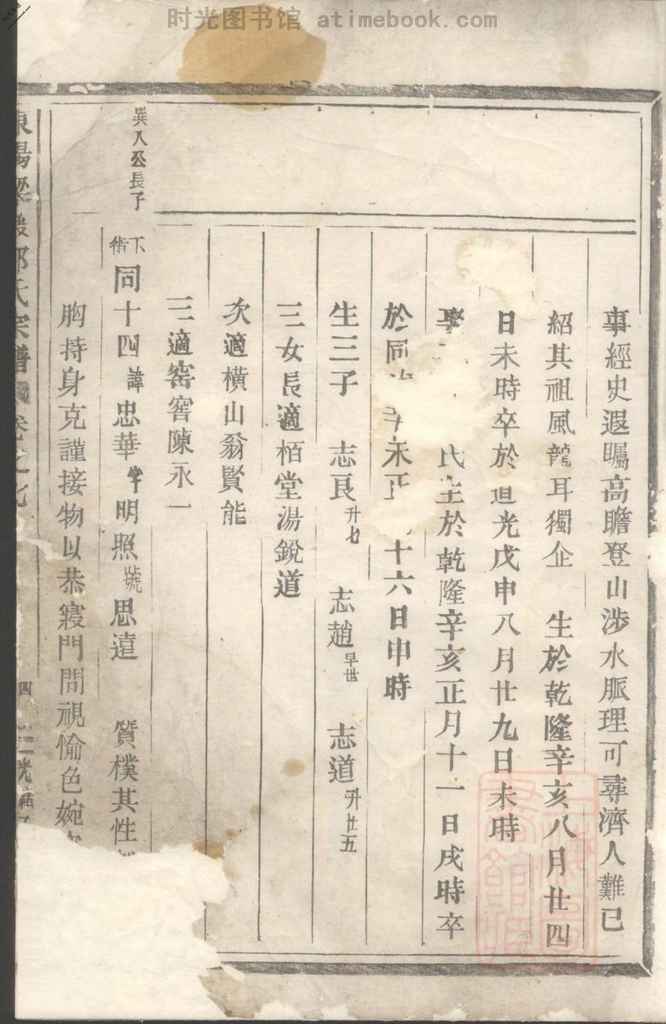 时光图书馆 atimebook.com
事經史遐矚高瞻登山涉水脈理可尋濟人難已
紹其祖風龍耳獨企 生於乾隆辛亥八月廿四
日未時卒於道光戊申八月廿九日未時
氏生於乾隆辛亥正月十一日戌時卒
於同 辛未正 十六日申時
生三子 志良升七 志趙早世 志道升廿五
三女長適栢堂湯銳道
次適橫山翁賢能
三適窑窖陳永一
巽人公長子
下街同十四諱忠華字明照號思遠 質樸其性
胸持身克謹接物以恭寢門問視愉色婉
氏宗譜 卷之七 四